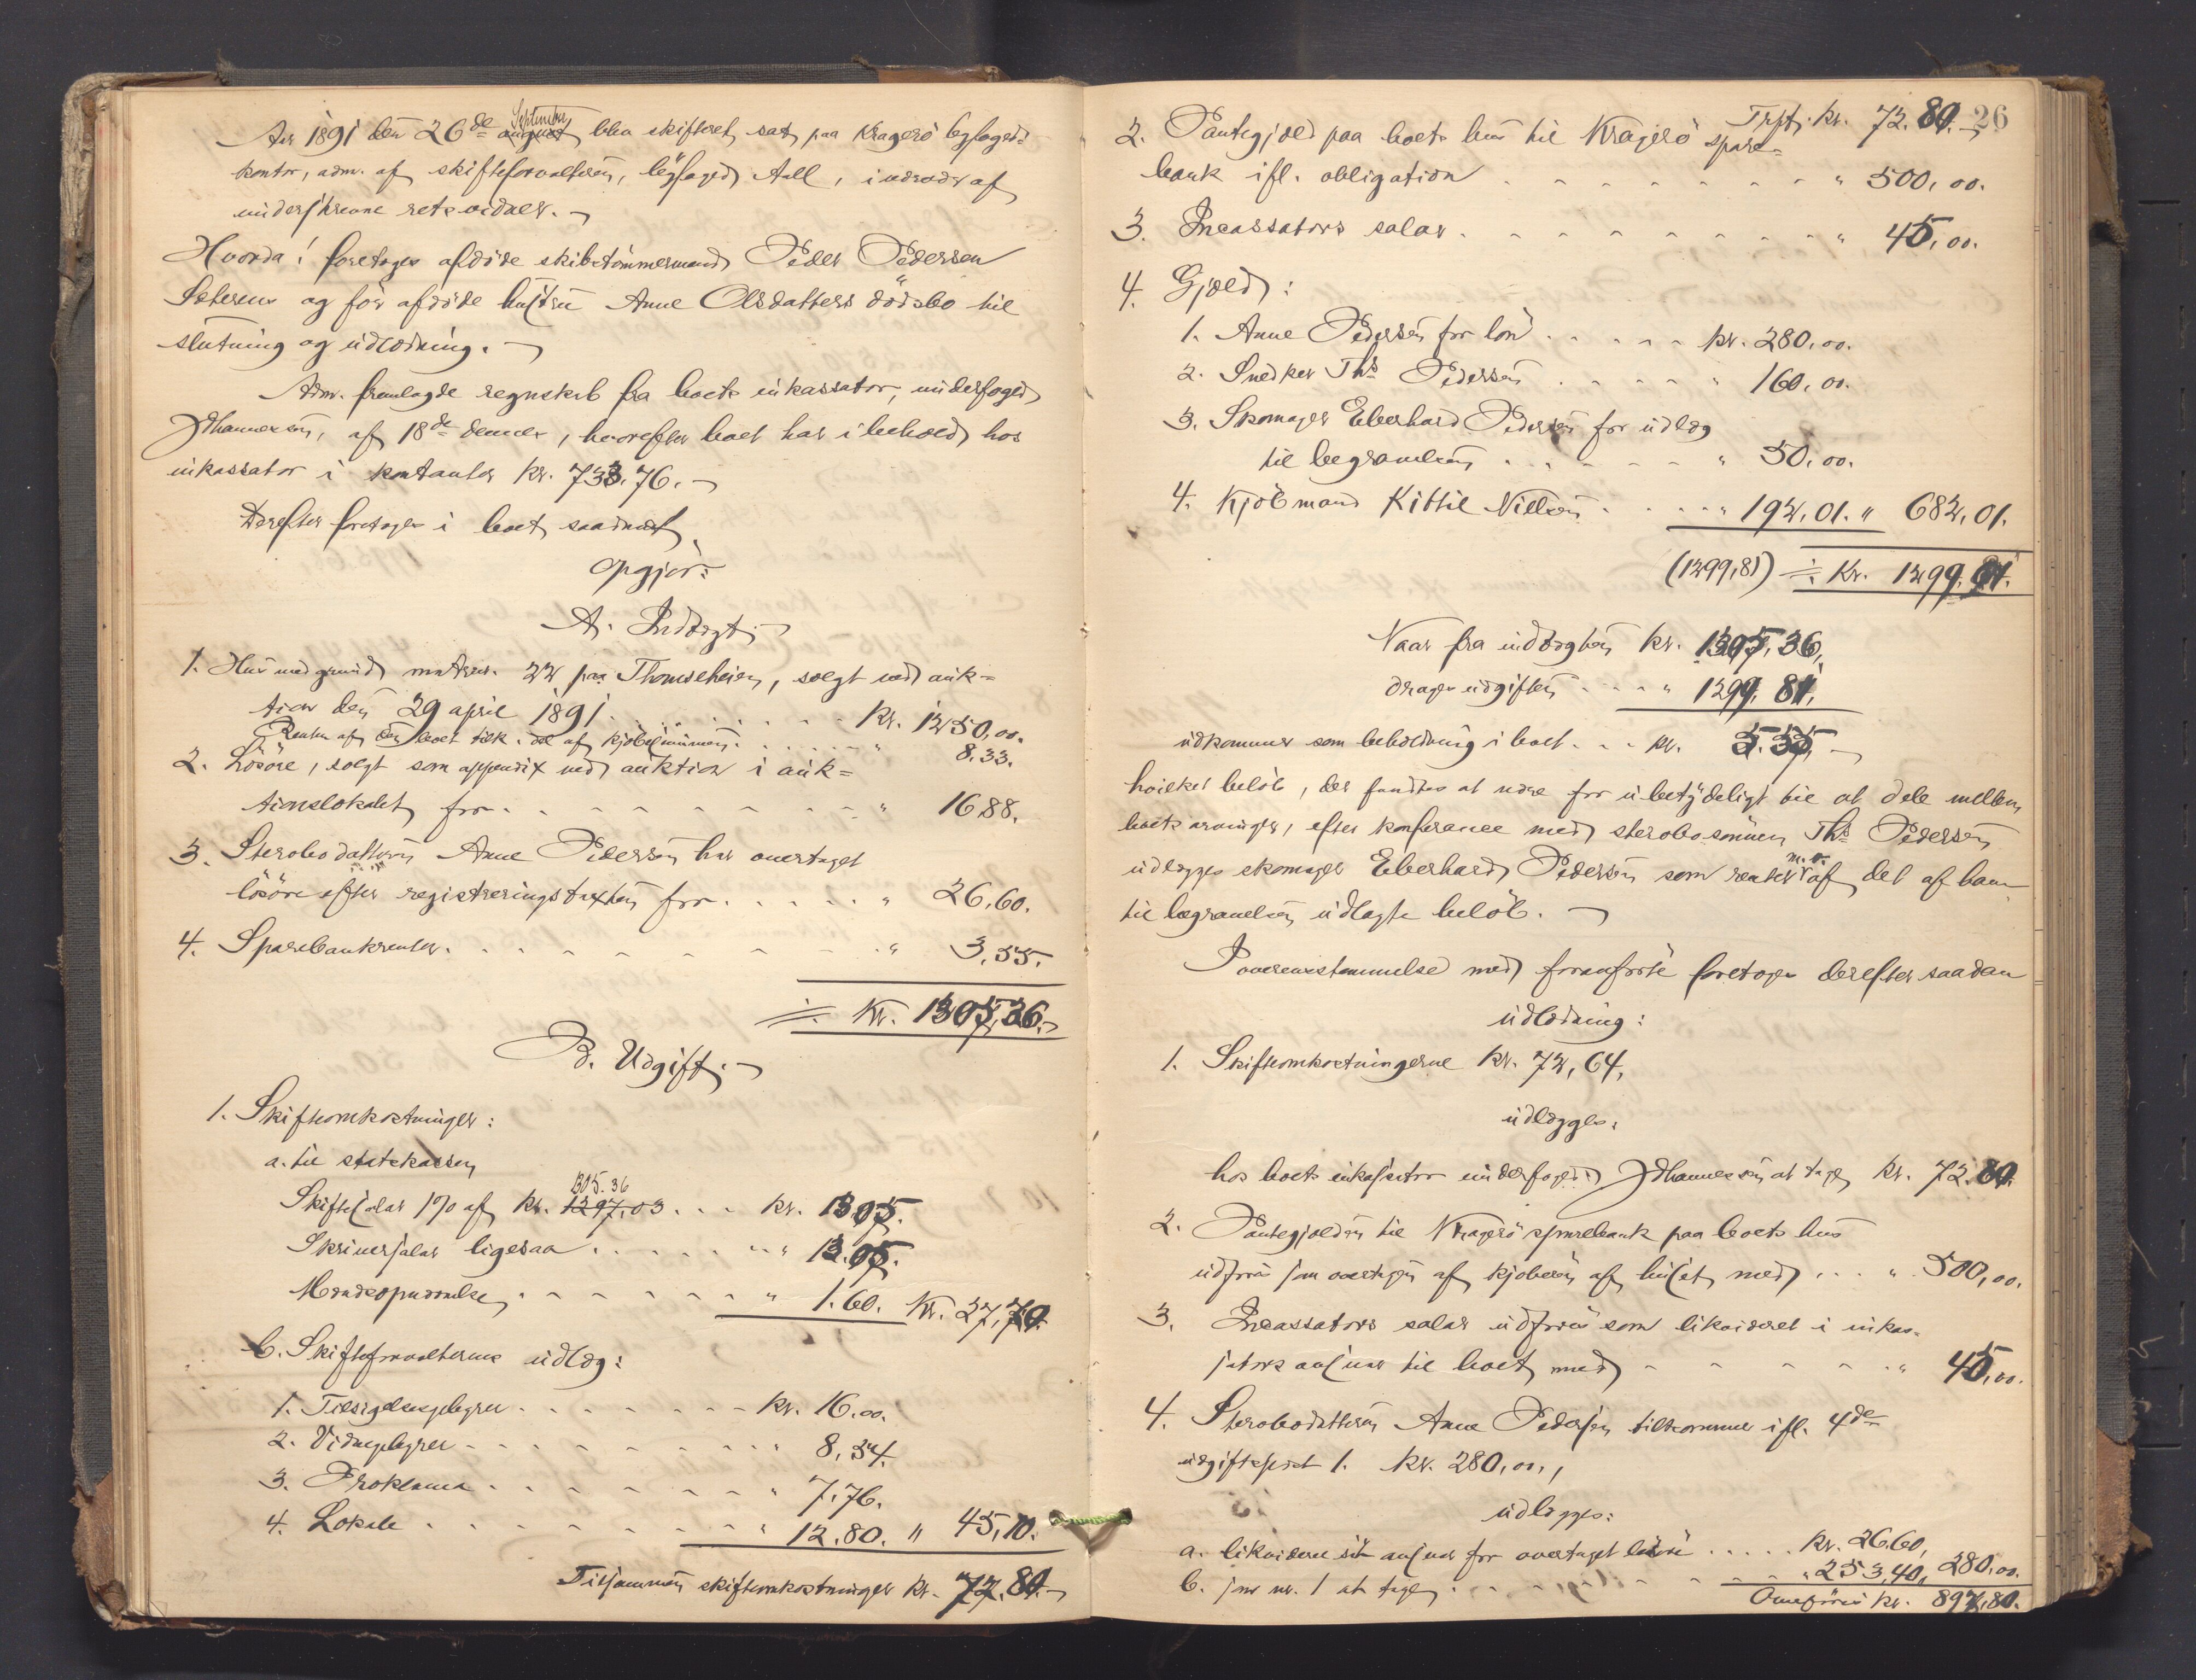 Aar 1891 den 26de august September blev skifteret sat paa Kragerö byfoged=
kontor, adm. af skifteforvalteren, byfoged Aall, i nærvær af
underskrevne retsvidner.
Hvorda! foretoges afdöde skibstömmermand Peder Pedersen
Seterens og för afdöde hustru Anne Olsdatters dödsbo til
slutning og udlodning.
Adm. fremlagde regnskab fra boets inkassator, underfoged
Johannessen, af 18de dennes, hvorefter boet har i behold hos
inkassator i kontanter kr. 733.76.
Derefter foretoges i boet saadant
opgjör:
A. Indtægt.
1. Hus med grund matrnr. 22 paa Thomesheien, solgt ved auk=
tion den 29 april 1891 . . . . kr. 1250,00.
Renten af den boet tilk. del af kjöbesummen . . . " 8.33.
2. Lösöre, solgt som appendix ved auktion i auk=
tionslokalet for . . . . " 16.88.
3. Sterbodatteren Anne Pedersen har overtaget
lösöre efter registreringstaxten for . . . . " 26.60.
4. Sparebankrenter . . . . " 3.55.
÷ Kr. 1305,36.
B. Udgift.
1. Skifteomkostninger:
a. til statskassen
Skiftesalar 1% af kr. 1297.03 1305.36 . . . kr. 13.05.
Skriversalar ligesaa . . . . " 13.05.
Mandsopnævnelse . . . . " 1.60. Kr. 27,70.
b. Skifteforvalterens udlæg:
1. Tilsigelsesgebyrer . . . . kr. 16.00.
2. Vidnegebyrer . . . . " 8.54.
3. Proklama . . . . " 7.76.
4. Lokale . . . . " 12.80. " 45,10.
Tilsammen skifteomkostninger kr. 72.80.
Trpt. kr. 72.80. 26
2. Pantegjæld paa boets hus til Kragerö spare=
bank ifl. obligation . . . . " 500,00.
3. Incassators salar . . . . " 45,00.
4. Gjæld:
1. Anne Pedersen for lön . . . . kr. 280,00.
2. Snedker Ths Pedersen . . . . " 160,00.
3. Skomager Eberhard Pedersen for udlæg
til begravelsen . . . . " 50,00.
4. Kjöbmand Kittil Nielsen . . . . " 192,01. " 682,01.
(1299,81) ÷ Kr. 1299,81.
Naar fra indtægten kr. 1305,36,
drages udgiften . . . " 1299,81,
udkommer som beholdning i boet . . . kr. 5.55,
hvilket belöb, der fandtes at være for ubetydeligt til at dele mellem
boets arvinger, efter konferance med sterbosönnen Ths Pedersen
udlægges skomager Eberhard Pedersen som renter m.v. af det af ham
til begravelsen udlagte belöb.
I overensstemmelse med foranförte foretoges derefter saadan
udlodning:
1. Skifteomkostningerne kr. 72,64,
udlægges:
hos boets inkassator underfoged Johannessen at tage kr. 72.80.
2. Pantegjælden til Kragerö sparebank paa boets hus
udföres som overtagen af kjöberen af huset med . . . " 500,00.
3. Incassators salar udföres som likvideret i inkas=
sators ansvar til boet med . . . . " 45,00.
4. Sterbodatteren Anne Pedersen tilkommer ifl. 4de
udgiftspost 1. kr. 280,00,
udlægges:
a. likvideres sit ansvar for overtaget lösöre . . . . kr. 26.60,
b. som nr. 1 at tage . . . . " 253,40, 280,00.
Overföres kr. 897,80.